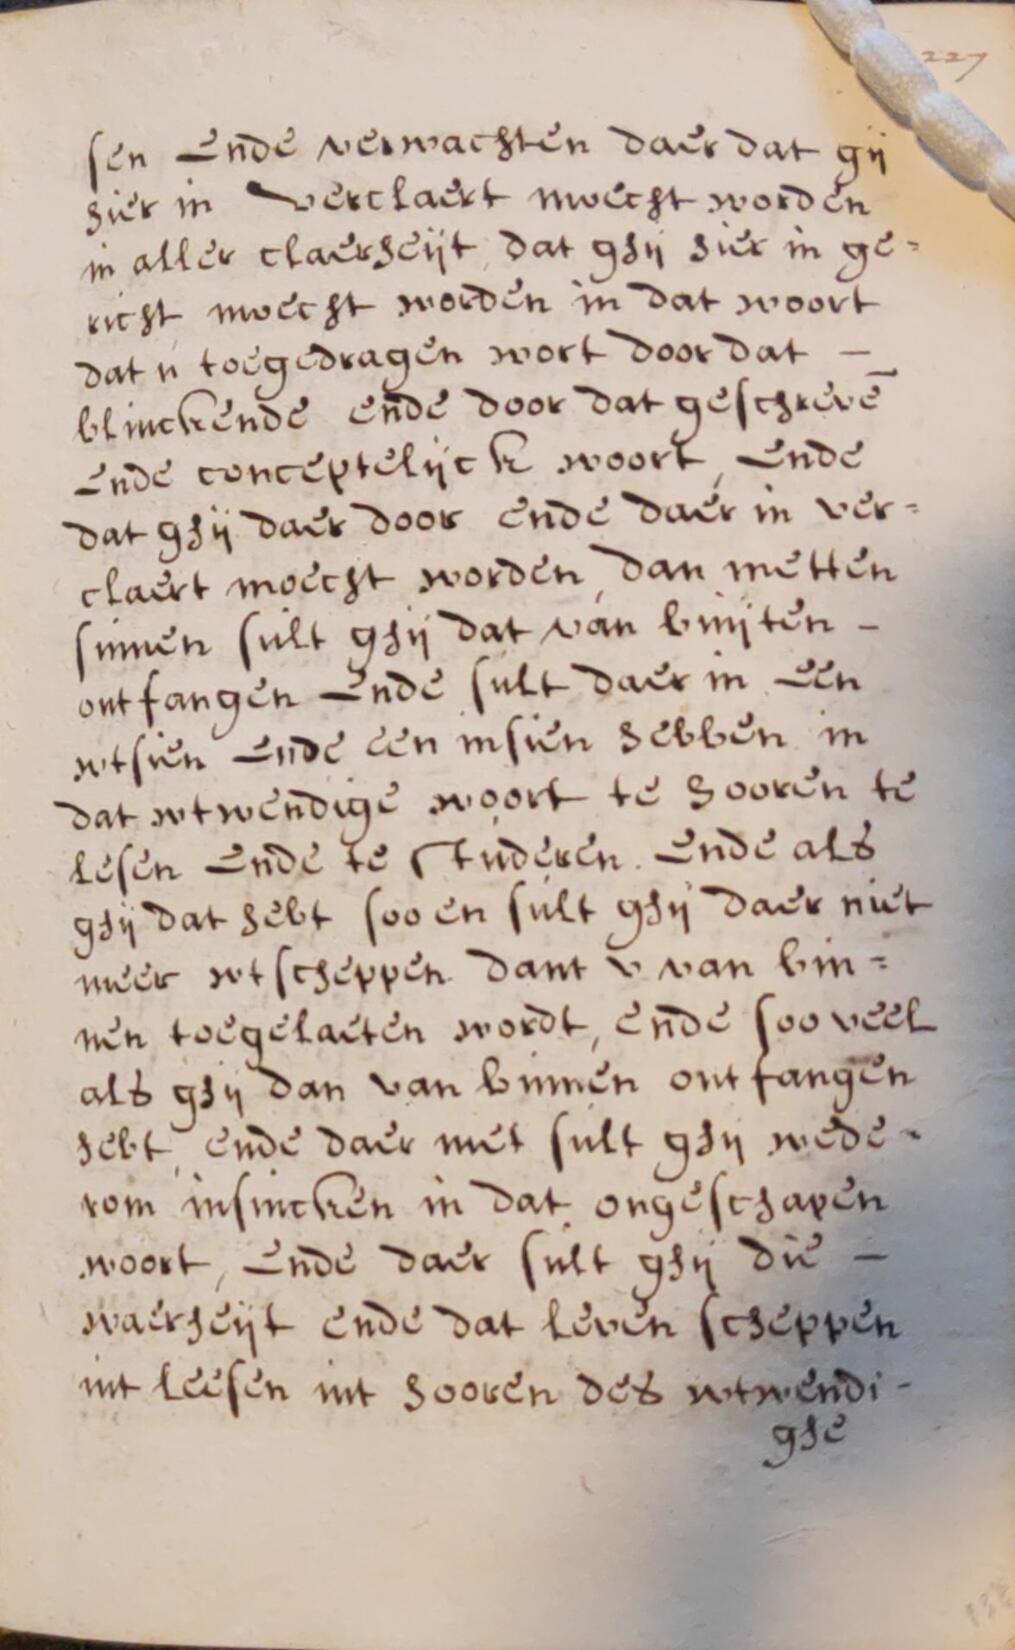 227
sen Ende verwachten daer dat gij
hier in verclaert moecht worden
in aller claerheijt, dat ghij hier in ge=
richt moecht worden in dat woort
dat u toegedragen wort door dat –
blinckende ende door dat geschrevē
Ende conceptelijck woort, Ende
dat ghij daer door ende daer in ver=
claert moecht worden, dan metten
sinnen sult ghij dat van buijten –
ontfangen Ende sult daer in Een
wtsien Ende een insien hebben in
dat wtwendige woort te hooren te
lesen Ende te studeren. Ende als
ghij dat hebt soo en sult ghij daer niet
meer wtscheppen dant v van bin=
nen toegelaeten wordt, ende soo veel
als ghij dan van binnen ontfangen
hebt, ende daer met sult ghij wede-
rom insincken in dat ongeschapen
woort, Ende daer sult ghij die –
waerheijt ende dat leven scheppen
int leesen int hooren des wtwendi-
ghe